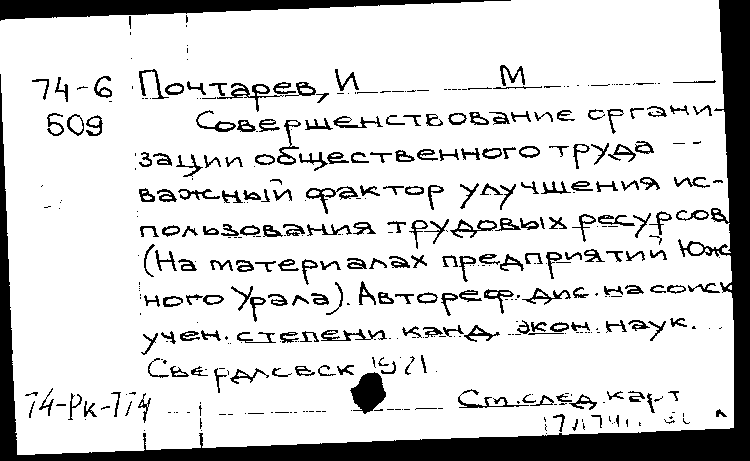 74-6 Почтарев, И М
509 Совершенствование органи-
зации общественного труда --
важный фактор улучшения ис-
пользования трудовых ресурсов
(На материалах предприятий Юж
ного Урала). Автореф. дис. на соиск
учен. степени канд. экон. наук.
Свердловск 1971
74-Рк-774 См. след. карт